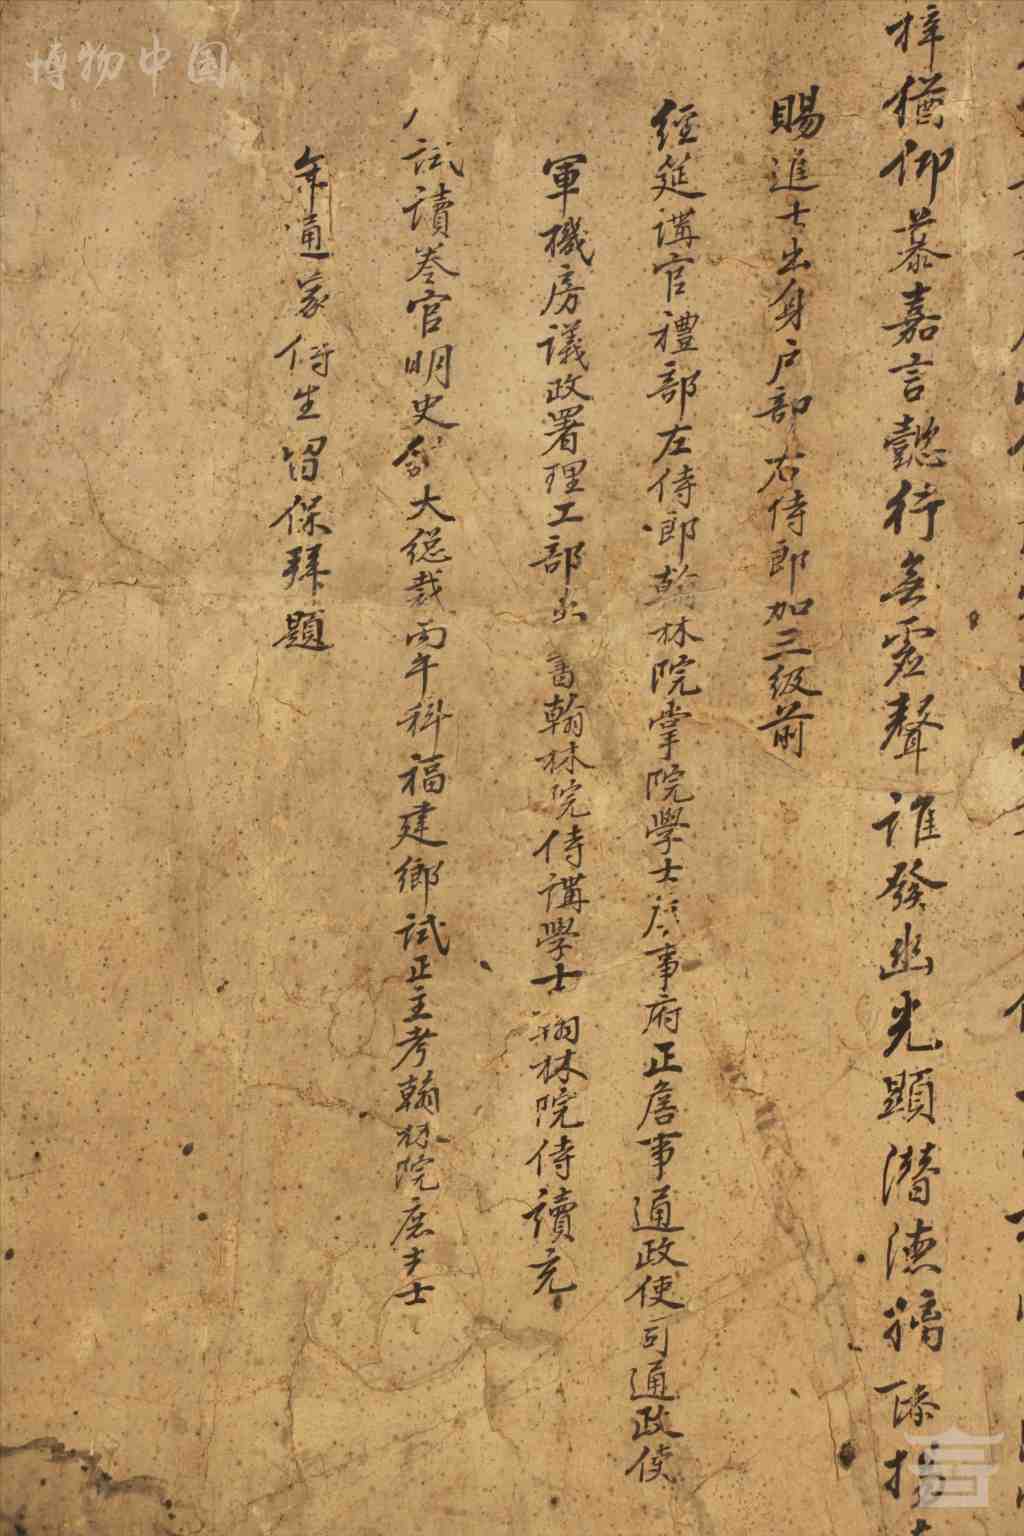 梓猶仰慕嘉言懿行無虛聲誰發幽光顯潛德
賜進士出身戶部右侍郎加三級前
經筵講官禮部左侍郎翰林院掌院學士詹事府正詹事通政使司通政使
軍機房議政署理工部尚書翰林院侍講學士翰林院侍讀充
試讀卷官明史舘大總裁丙午科福建鄉試正主考翰林院庶吉士
年通家侍生留保拜題
博物中国